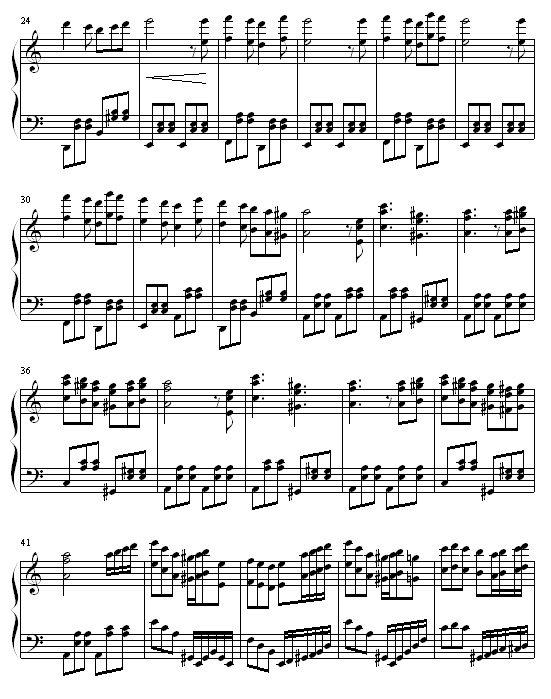 24
30
36
41